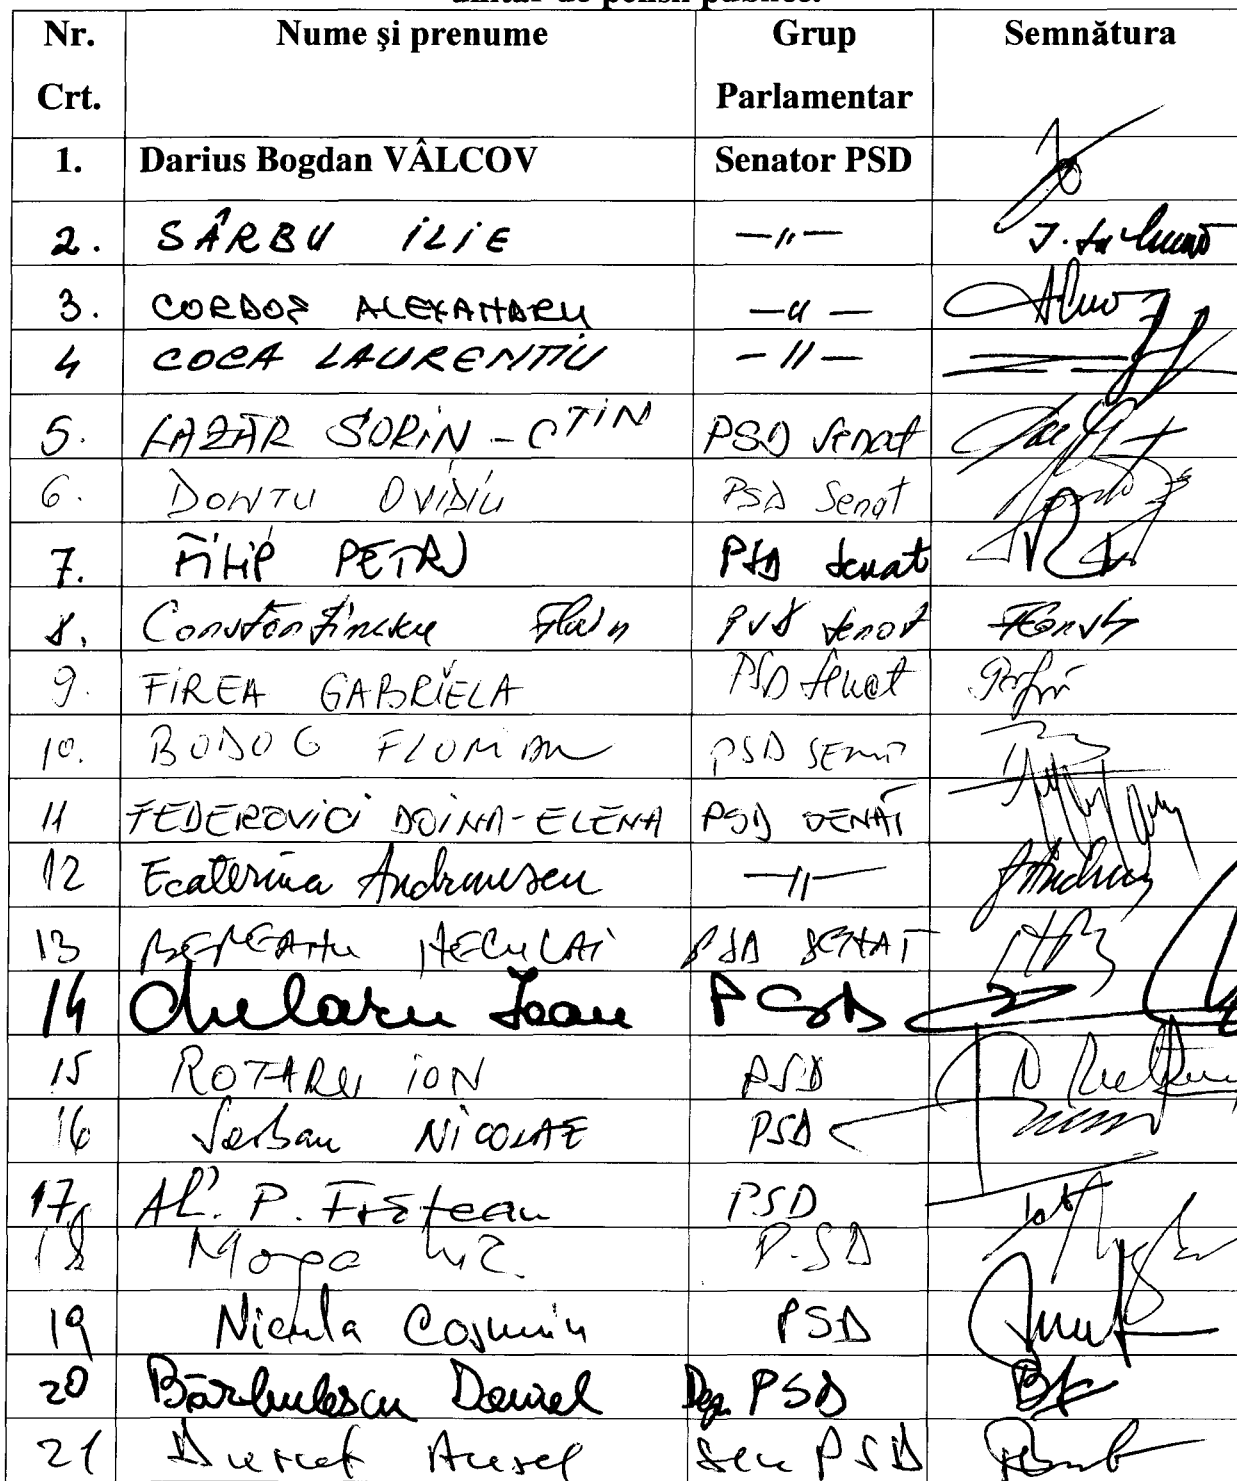 unitar de pensii publice.
Nr. Crt. Nume și prenume Grup Parlamentar Semnătura
1. Darius Bogdan VÂLCOV Senator PSD
2. SÂRBU ILIE —"—
3. CORDOȘ ALEXANDRU —"—
4 COCA LAURENȚIU —"—
5. LAZĂR SORIN - CTIN PSD Senat
6. DONȚU OVIDIU PSD Senat
7. FILIP PETRU PSD Senat
8. Constantinescu Florin PSD Senat
9. FIREA GABRIELA PSD Senat
10. BODOG FLORIAN PSD SENAT
11 FEDEROVICI DOINA-ELENA PSD SENAT
12 Ecaterina Andronescu —"—
13 BEREANU NECULAI PSD SENAT
14 Chelaru Ioan PSD
15 ROTARU ION PSD
16 Șerban NICOLAE PSD
17 Al. P. Frățean PSD
18 PSD
19 Nicula Cosmin PSD
20 Bărbulescu Daniel Dep. PSD
21 Aurel Sen PSD